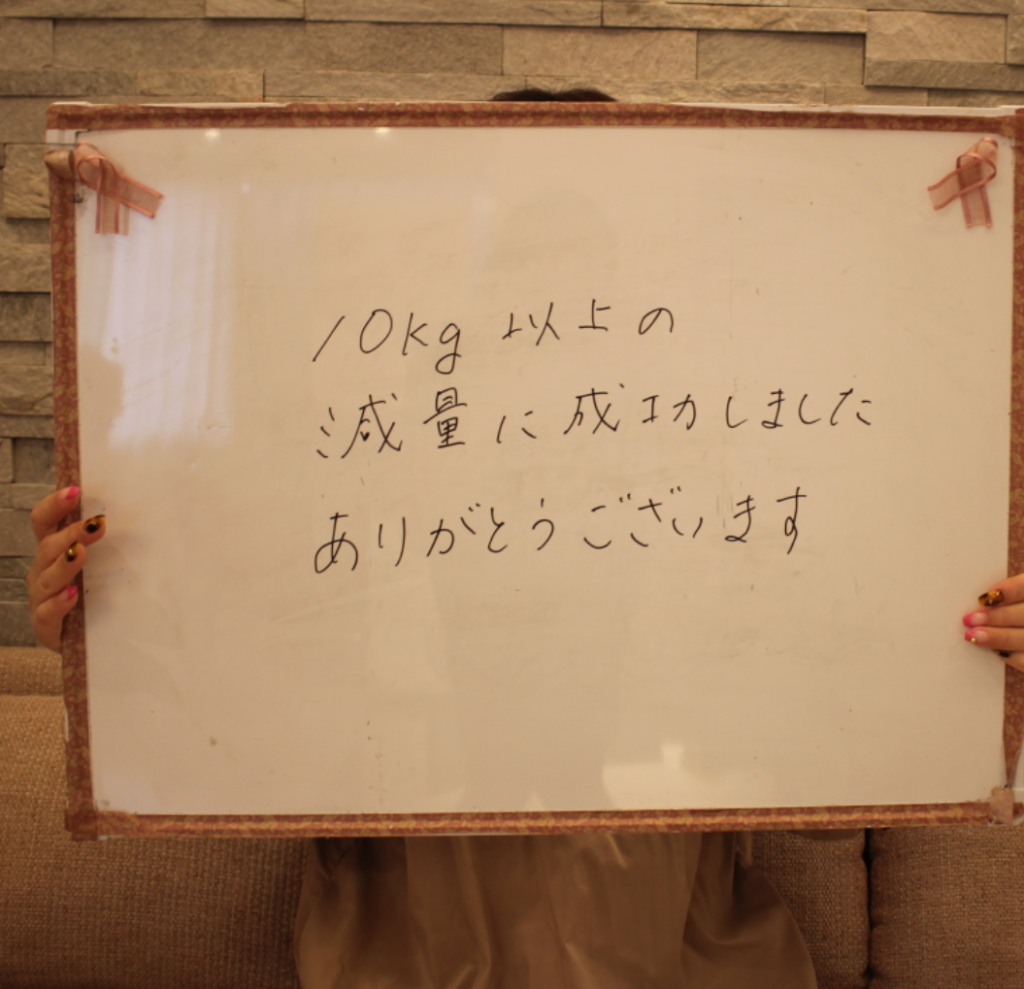 10kg 以上の
減量に成功しました
ありがとうございます